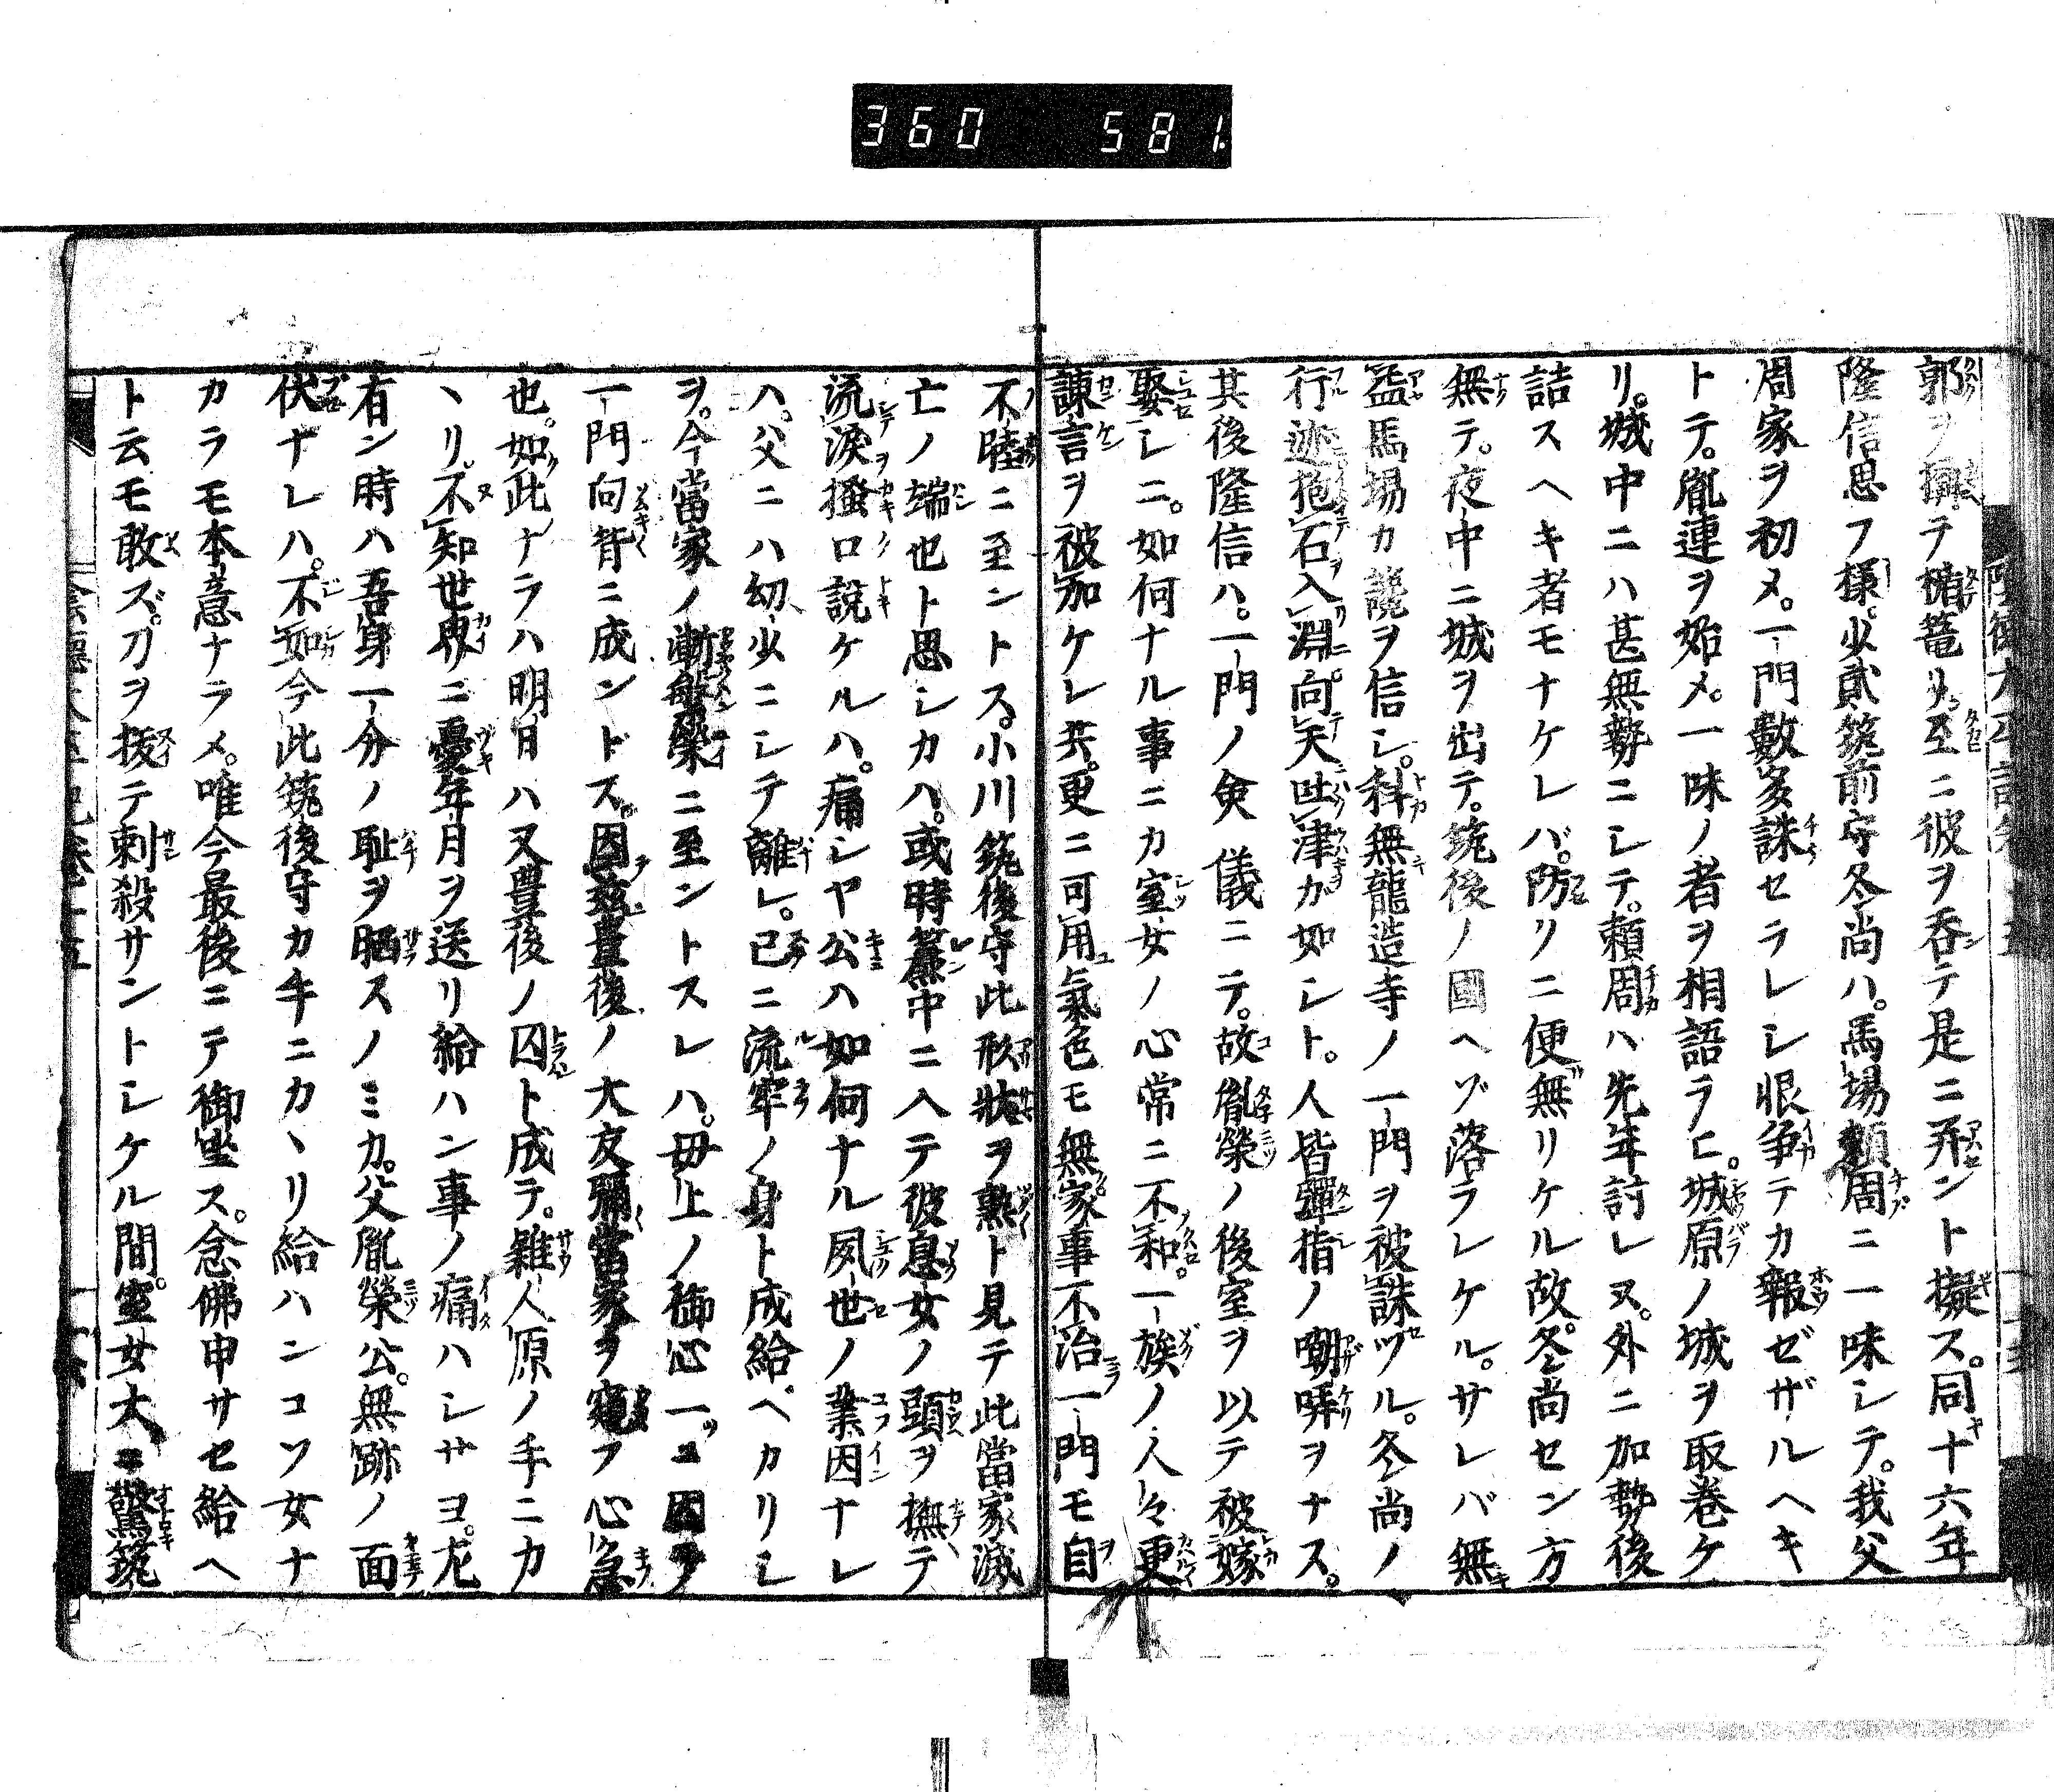 360 581.
郭ヲ搆テ楯篭リ。至ニ彼ヲ呑テ是ニ幷ント擬ス。同十六年
隆信思フ様。少貳筑前守冬尚ハ。馬場頼周ニ一味シテ。我父
周家ヲ初メ。一門數多誅セラレシ恨争テカ報ゼザルヘキ
トテ。胤連ヲ始メ。一味ノ者ヲ相語ラヒ。城原ノ城ヲ取巻ケ
リ。城中ニハ甚無勢ニシテ。頼周ハ先年討レヌ。外ニ加勢後
詰スヘキ者モナケレバ。防リニ便無リケル故。冬尚セン方
無テ。夜中ニ城ヲ出テ。筑後ノ國ヘゾ落ラレケル。サレバ無
益馬場カ讒ヲ信シ。科無龍造寺ノ一門ヲ被誅ヅル。冬尚ノ
行迹抱石入淵。向天吐津ガ如シト。人皆彈指ノ嘲哢ヲナス。
其後隆信ハ。一門ノ僉儀ニテ。故胤榮ノ後室ヲ以テ被嫁
娶シニ。如何ナル事ニカ室女ノ心常ニ不和。一族ノ人々更
諫言ヲ被加ケレ共。更ニ可用氣色モ無。家事不治一門モ自
不睦ニ至ントス。小川筑後守此形狀ヲ熟ト見テ此當家滅
亡ノ端也ト思シカハ。或時簾中ニ入テ彼息女ノ頭ヲ撫テ
流淚掻口説ケルハ。痛シヤ公ハ如何ナル夙世ノ業因ナレ
ハ。父ニハ幼少ニシテ離レ。已ニ流牢ノ身ト成給ヘカリシ
ヲ。今當家ノ漸繁榮ニ至ントスレハ。母上ノ御心一ツニ因テ
一門向背ニ成ンドス。因茲豊後ノ大友彌當家ヲ窺フ心急
也。如此ナラハ明日ハ又豊後ノ囚ト成テ。雜人原ノ手ニカ
ヽリ。不知世界ニ憂年月ヲ送リ給ハン事ノ痛ハシサヨ。尤
有ン時ハ吾身一分ノ耻ヲ晒スノミカ。父胤榮公。無跡ノ面
伏ナレハ。不如今此筑後守カ手ニカヽリ給ハンコソ女ナ
カラモ本意ナラメ。唯今最後ニテ御坐ス。念佛申サセ給ヘ
ト云モ敢ズ。刀ヲ拔テ刺殺サントシケル間。室女大ニ驚筑